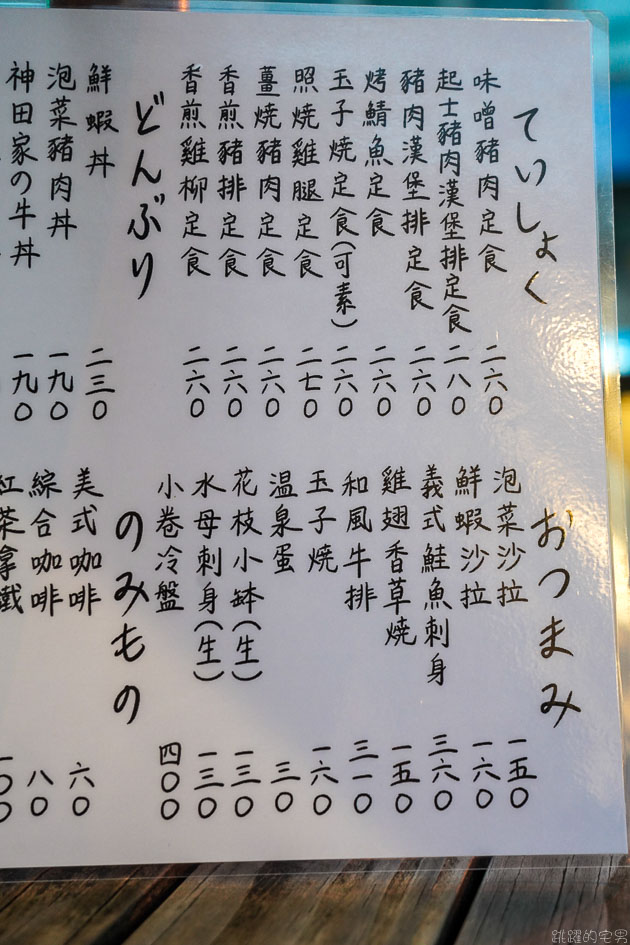 ていしょく
味噌豬肉定食 二六〇
起士豬肉漢堡排定食 二八〇
豬肉漢堡排定食 二六〇
烤鯖魚定食 二六〇
玉子燒定食(可素) 二六〇
照燒雞腿定食 二七〇
薑燒豬肉定食 二六〇
香煎豬排定食 二六〇
香煎雞柳定食 二六〇
どんぶり
鮮蝦丼 二三〇
泡菜豬肉丼 一九〇
神田家の牛丼 一九〇
おつまみ
泡菜沙拉 一五〇
鮮蝦沙拉 一六〇
義式鮭魚刺身 三六〇
雞翅香草燒 一五〇
和風牛排 三一〇
玉子燒 一六〇
溫泉蛋 三〇
花枝小缽(生) 一三〇
水母刺身(生) 一三〇
小卷冷盤 四〇〇
のみもの
美式咖啡 六〇
綜合咖啡 八〇
紅茶拿鐵 一〇〇
跳躍的宅男